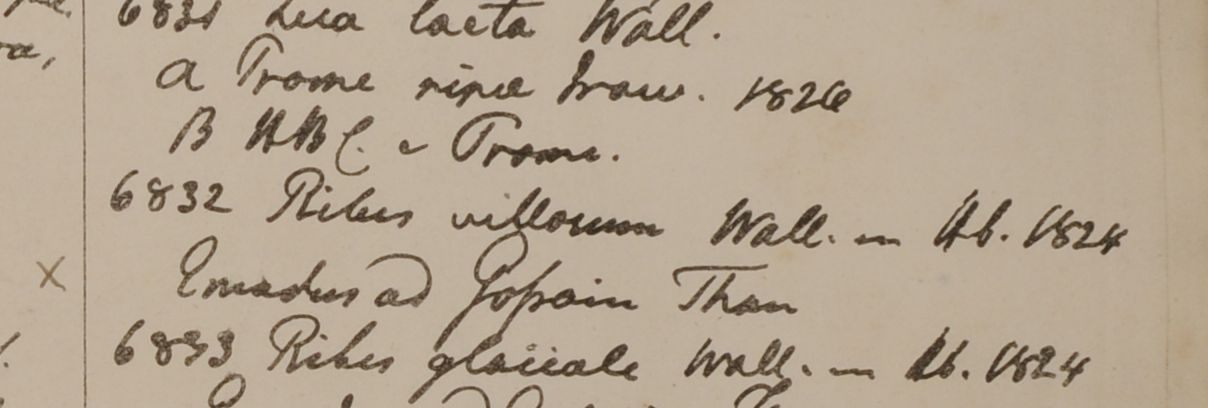 6831 Leea laeta Wall.
a Prome ripae Iraw. 1826
B HBC. e Prome.
6832 Ribes villosum Wall. in Hb. 1824
Emodus ad Gossain Than
6833 Ribes glaciale Wall. in Hb. 1824